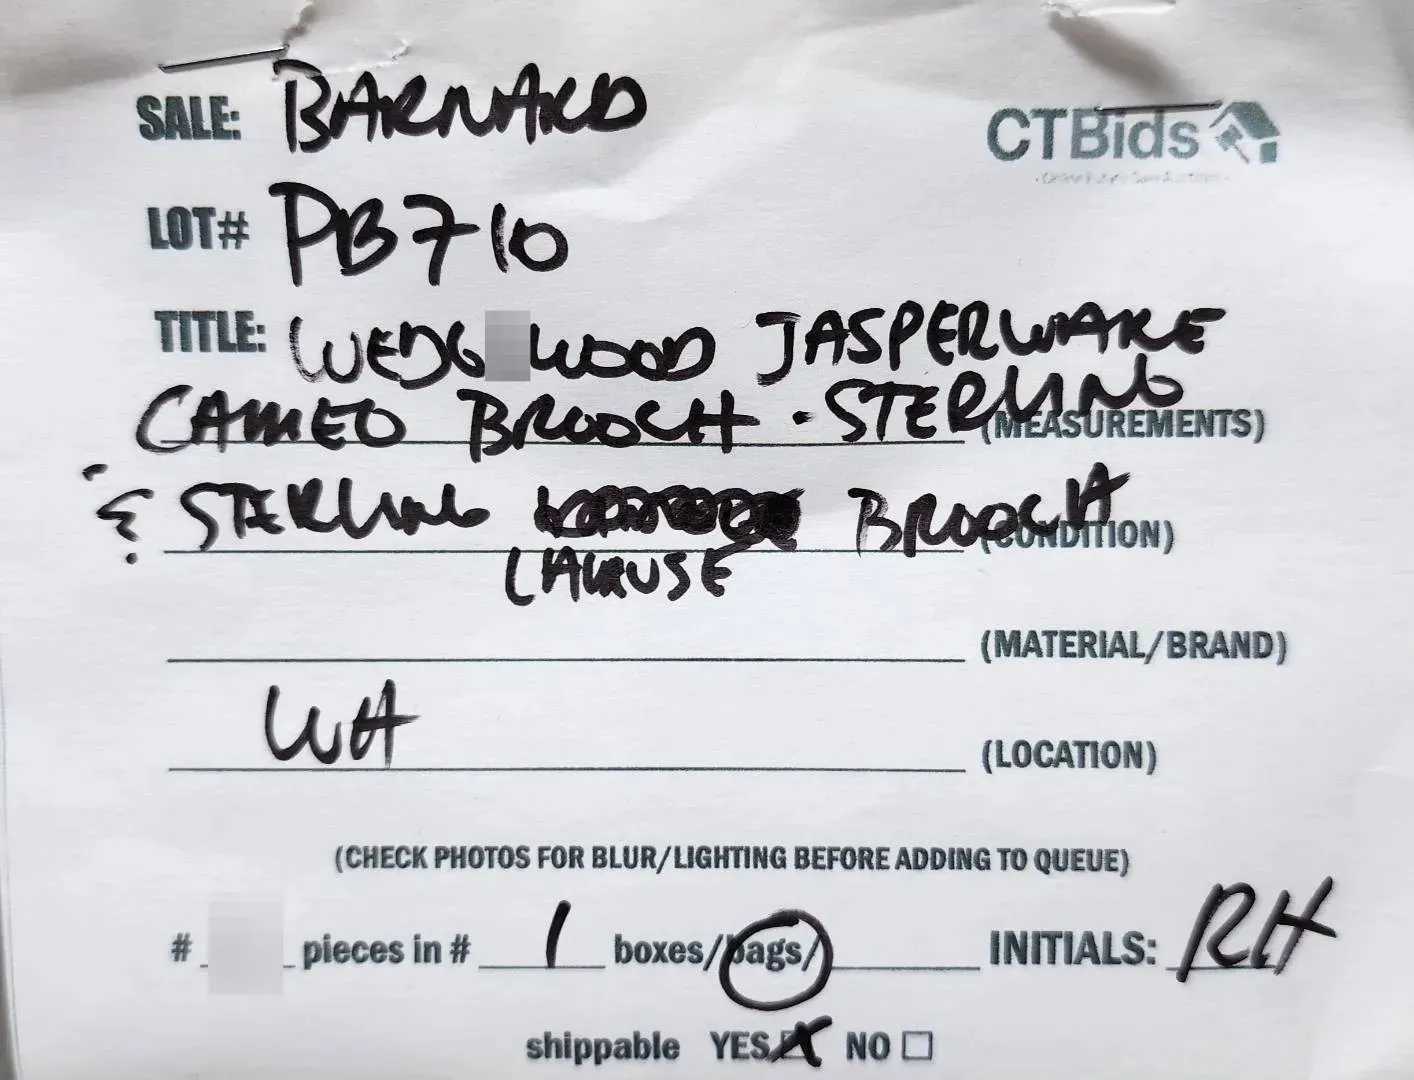 SALE: BARNARD
CTBids
LOT# PB710
TITLE: WEDG WOOD JASPERWARE
CAMEO BROOCH · STERLING
(MEASUREMENTS)
& STERLING BROOCH
(CONDITION)
(MATERIAL/BRAND)
WH (LOCATION)
(CHECK PHOTOS FOR BLUR/LIGHTING BEFORE ADDING TO QUEUE)
# pieces in # 1 boxes/bags/ INITIALS: RH
shippable YES NO